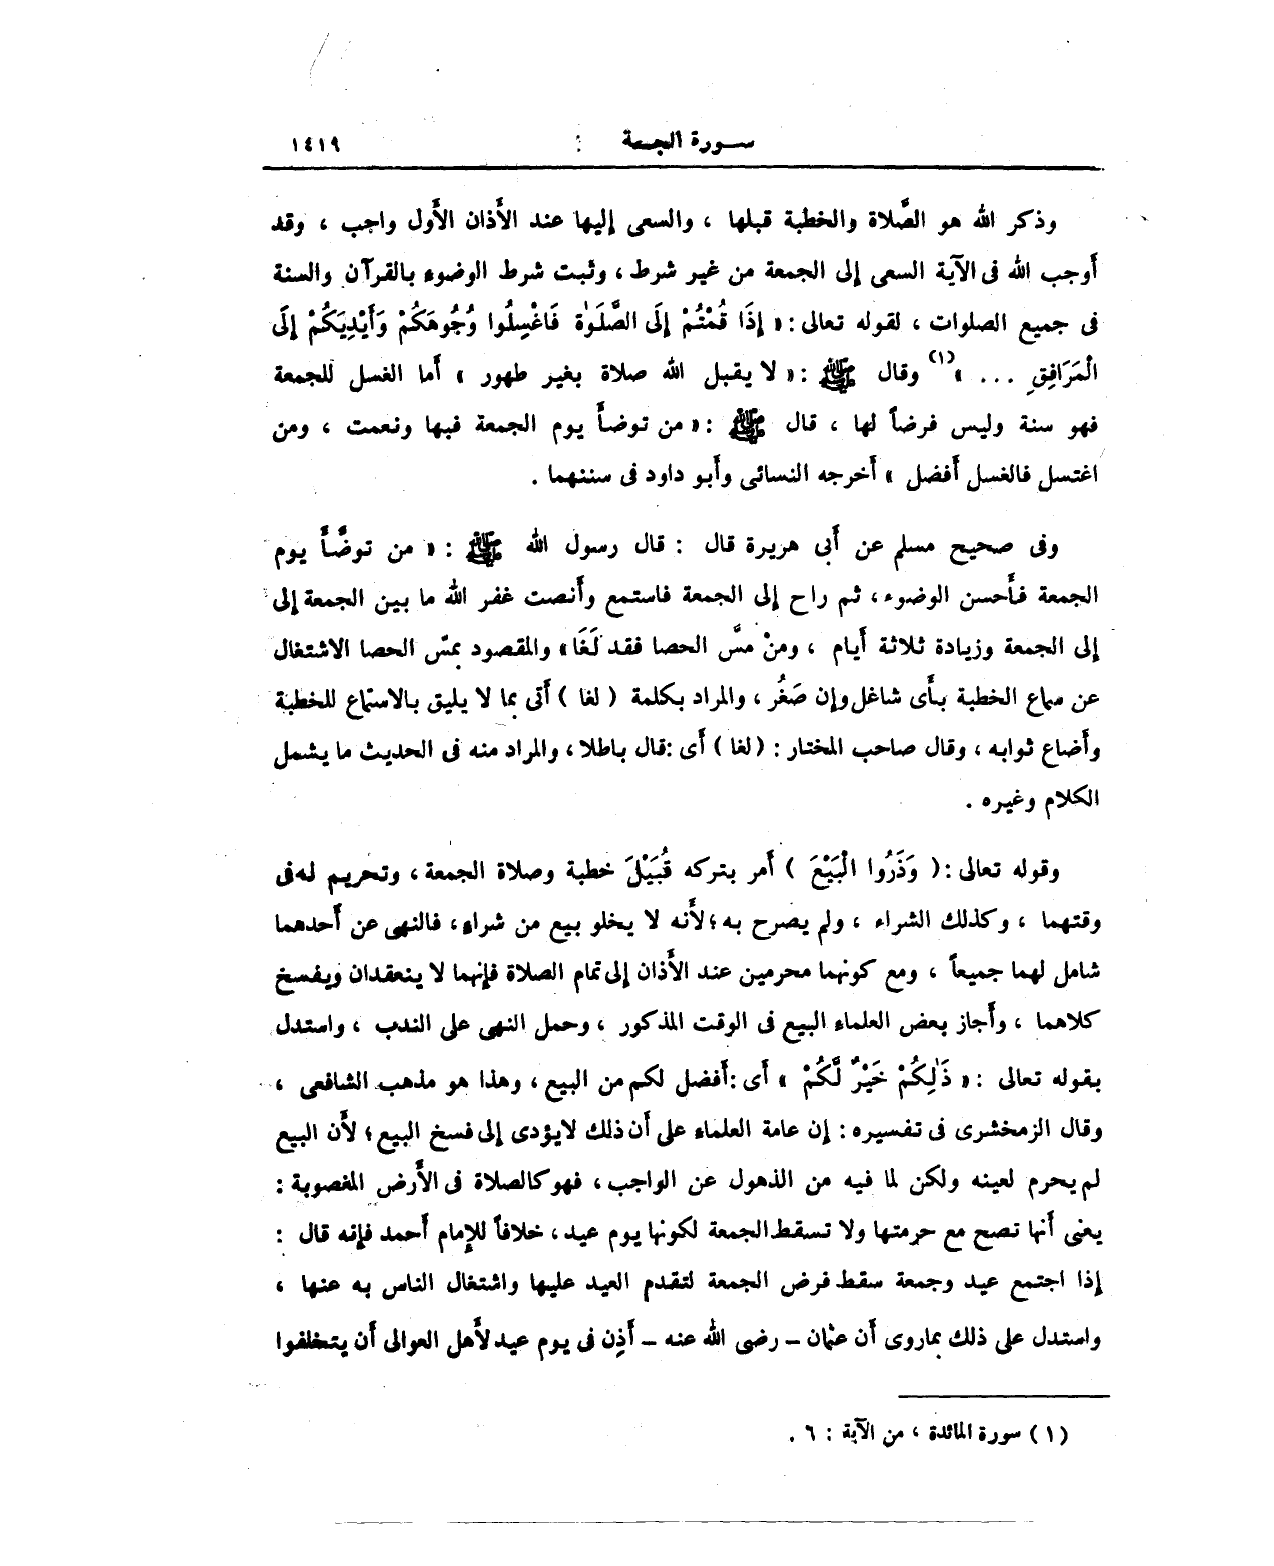 سورة الجمعة ١٤١٩
وذكر الله هو الصَّلاة والخطبة قبلها ، والسعى إليها عند الأَذان الأَول واجب ، وقد
أَوجب الله فى الآية السعى إلى الجمعة من غير شرط ، وثبت شرط الوضوء بالقرآن والسنة
فى جميع الصلوات ، لقوله تعالى : « إِذَا قُمْتُمْ إِلَى الصَّلَوٰةِ فَاغْسِلُوا وُجُوهَكُمْ وَأَيْدِيَكُمْ إِلَى
الْمَرَافِقِ ... »(١) وقال ﷺ : « لا يقبل الله صلاة بغير طهور » أما الغسل للجمعة
فهو سنة وليس فرضاً لها ، قال ﷺ : « من توضأَ يوم الجمعة فبها ونعمت ، ومن
اغتسل فالغسل أَفضل » أَخرجه النسائى وأَبو داود فى سننهما .
وفى صحيح مسلم عن أَبى هريرة قال : قال رسول الله ﷺ : « من توضَّأَ يوم
الجمعة فأَحسن الوضوء ، ثم راح إلى الجمعة فاستمع وأَنصت غفر الله ما بين الجمعة إلى
إلى الجمعة وزيادة ثلاثة أَيام ، ومنْ مسَّ الحصا فقد لَغَا » والمقصود بمسّ الحصا الاشتغال
عن سماع الخطبة بأَى شاغل وإن صَغُر ، والمراد بكلمة ( لغا ) أَتى بما لا يليق بالاستماع للخطبة
وأَضاع ثوابه ، وقال صاحب المختار : ( لغا ) أَى : قال باطلا ، والمراد منه فى الحديث ما يشمل
الكلام وغيره .
وقوله تعالى : ( وَذَرُوا الْبَيْعَ ) أَمر بتركه قُبَيْلَ خطبة وصلاة الجمعة ، وتحريم له فى
وقتهما ، وكذلك الشراء ، ولم يصرح به ؛ لأَنه لا يخلو بيع من شراء ، فالنهى عن أَحدهما
شامل لهما جميعاً ، ومع كونهما محرمين عند الأَذان إلى تمام الصلاة فإنهما لا ينعقدان ويفسخ
كلاهما ، وأَجاز بعض العلماء البيع فى الوقت المذكور ، وحمل النهى على الندب ، واستدل
بقوله تعالى : « ذَٰلِكُمْ خَيْرٌ لَّكُمْ » أَى : أَفضل لكم من البيع ، وهذا هو مذهب الشافعى ،
وقال الزمخشرى فى تفسيره : إن عامة العلماء على أَن ذلك لا يؤدى إلى فسخ البيع ؛ لأَن البيع
لم يحرم لعينه ولكن لما فيه من الذهول عن الواجب ، فهو كالصلاة فى الأَرض المغصوبة :
يعنى أَنها تصح مع حرمتها ولا تسقط الجمعة لكونها يوم عيد ، خلافاً للإمام أَحمد فإنه قال :
إذا اجتمع عيد وجمعة سقط فرض الجمعة لتقدم العيد عليها واشتغال الناس به عنها ،
واستدل على ذلك بما روى أَن عثمان – رضى الله عنه – أَذِن فى يوم عيد لأَهل العوالى أَن يتخلفوا
(١) سورة المائدة ، من الآية : ٦ .